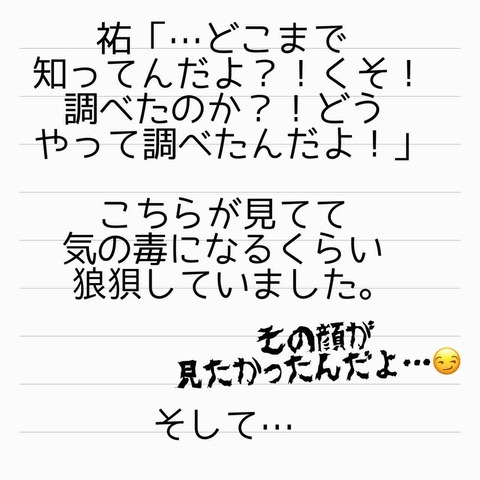 祐「…どこまで
知ってんだよ？！くそ！
調べたのか？！どう
やって調べたんだよ！」
こちらが見てて
気の毒になるくらい
狼狽していました。
その顔が
見たかったんだよ…😏
そして…